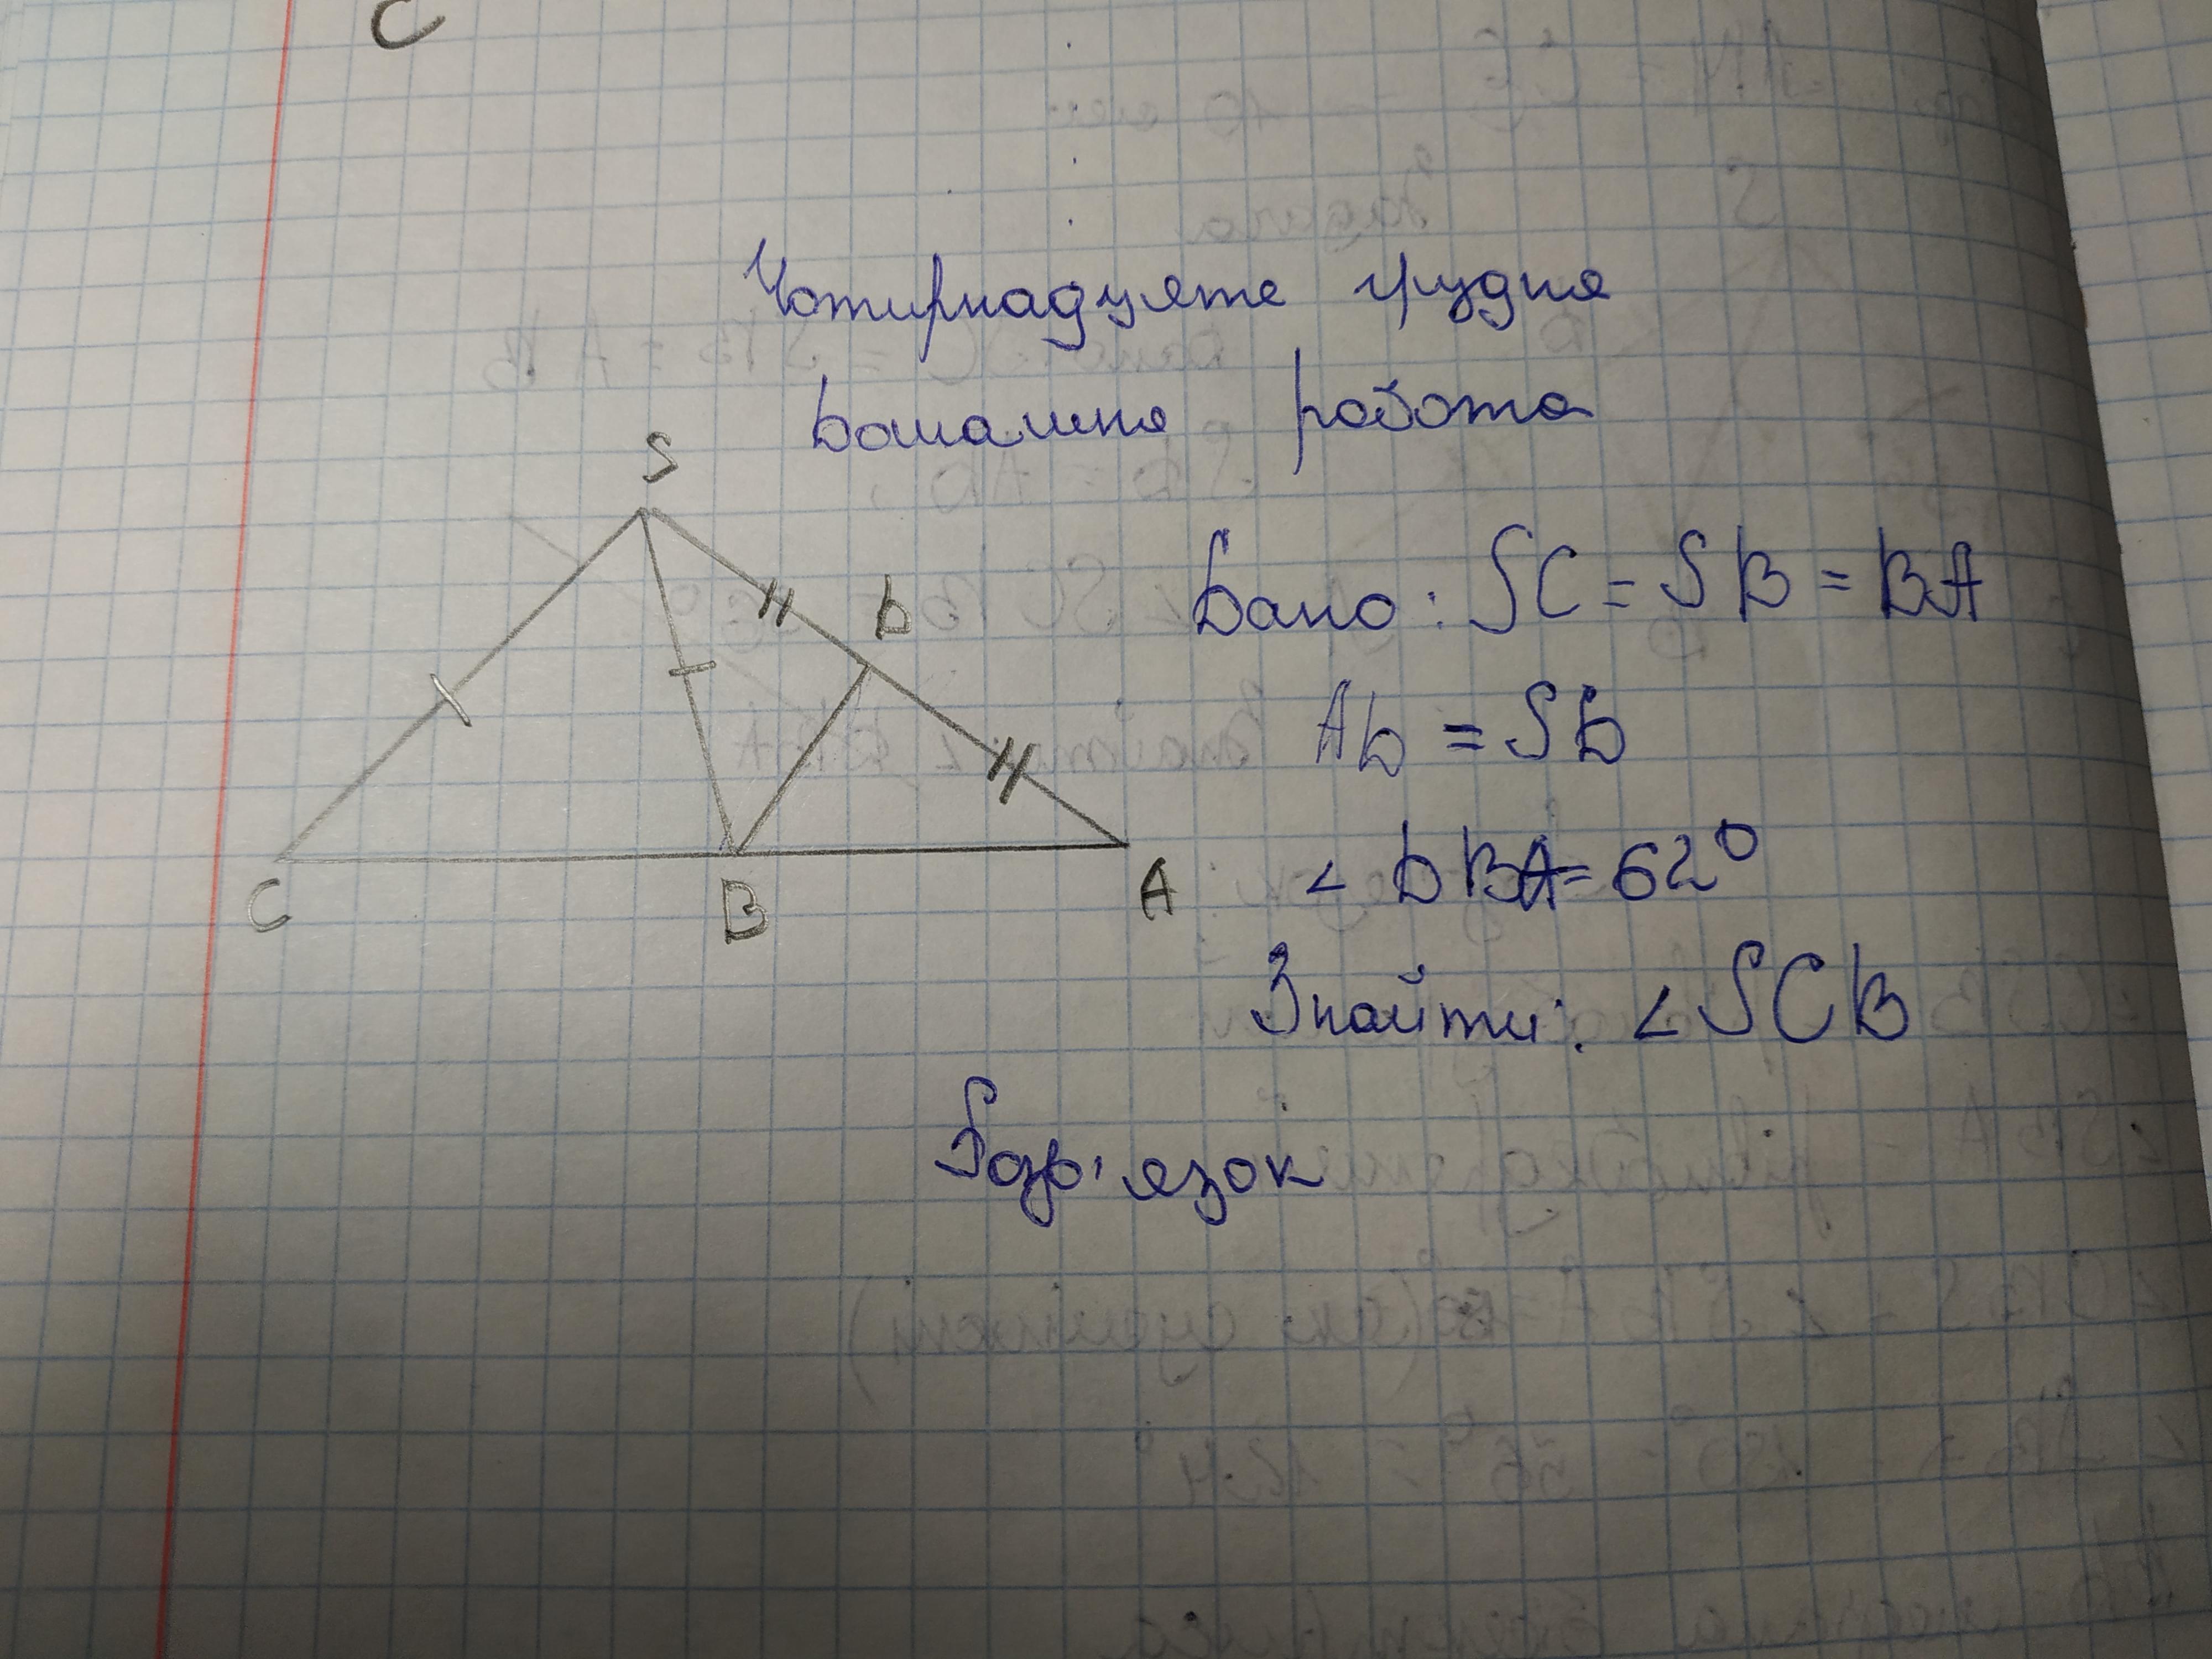 C
Чотирнадцяте грудня
Домашня робота
S
D
Дано: SC = SB = BA
AD = SD
∠ DBA = 62°
C
B
A
Знайти: ∠SCB
Розв'язок